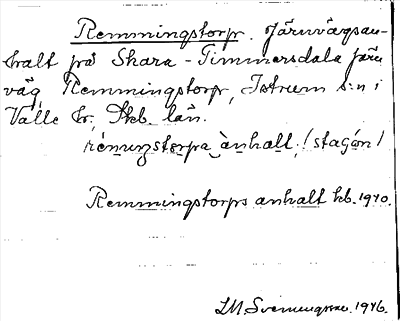 Remmingstorp. Järnvägsan-
halt på Skara - Timmersdala järn
väg Remmingstorp, Istrum s:n i
Valle hr, Skb. län.
rémuŋstorpa ànhalt, (stagón)
Remmingstorps anhalt kb. 1940.
1946.